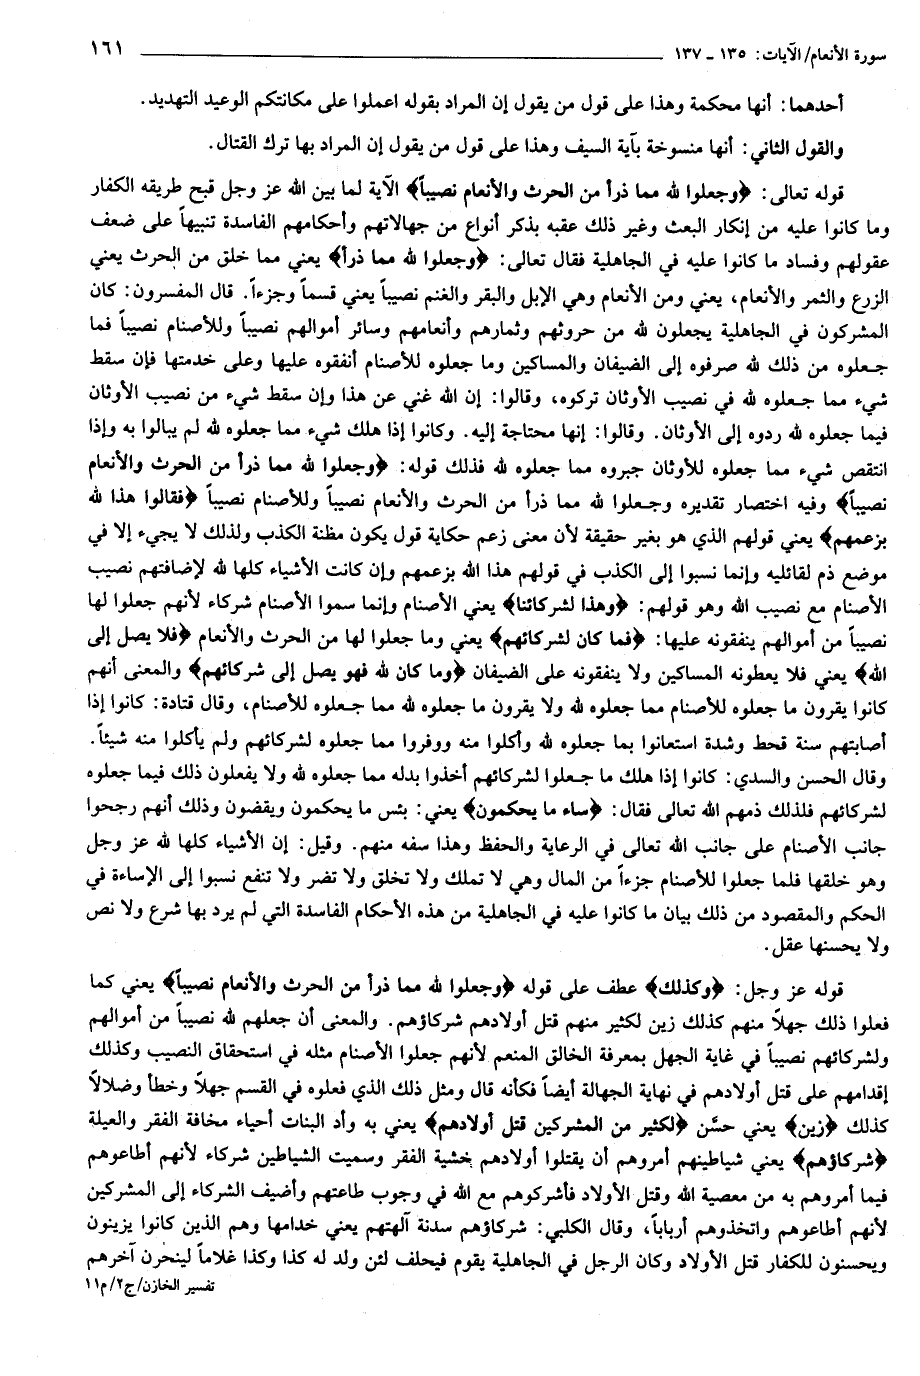 سورة الأنعام/ الآيات: ١٣٥ ـ ١٣٧ ١٦١
أحدهما: أنها محكمة وهذا على قول من يقول إن المراد بقوله اعملوا على مكانتكم الوعيد التهديد.
والقول الثاني: أنها منسوخة بآية السيف وهذا على قول من يقول إن المراد بها ترك القتال.
قوله تعالى: ﴿وجعلوا لله مما ذرأ من الحرث والأنعام نصيباً﴾ الآية لما بين الله عز وجل قبح طريقه الكفار
وما كانوا عليه من إنكار البعث وغير ذلك عقبه بذكر أنواع من جهالاتهم وأحكامهم الفاسدة تنبيهاً على ضعف
عقولهم وفساد ما كانوا عليه في الجاهلية فقال تعالى: ﴿وجعلوا لله مما ذرأ﴾ يعني مما خلق من الحرث يعني
الزرع والثمر والأنعام، يعني ومن الأنعام وهي الإبل والبقر والغنم نصيباً يعني قسماً وجزءاً. قال المفسرون: كان
المشركون في الجاهلية يجعلون لله من حروثهم وثمارهم وأنعامهم وسائر أموالهم نصيباً وللأصنام نصيباً فما
جعلوه من ذلك لله صرفوه إلى الضيفان والمساكين وما جعلوه للأصنام أنفقوه عليها وعلى خدمتها فإن سقط
شيء مما جعلوه لله في نصيب الأوثان تركوه، وقالوا: إن الله غني عن هذا وإن سقط شيء من نصيب الأوثان
فيما جعلوه لله ردوه إلى الأوثان. وقالوا: إنها محتاجة إليه. وكانوا إذا هلك شيء مما جعلوه لله لم يبالوا به وإذا
انتقص شيء مما جعلوه للأوثان جبروه مما جعلوه لله فذلك قوله: ﴿وجعلوا لله مما ذرأ من الحرث والأنعام
نصيباً﴾ وفيه اختصار تقديره وجعلوا لله مما ذرأ من الحرث والأنعام نصيباً وللأصنام نصيباً ﴿فقالوا هذا لله
بزعمهم﴾ يعني قولهم الذي هو بغير حقيقة لأن معنى زعم حكاية قول يكون مظنة الكذب ولذلك لا يجيء إلا في
موضع ذم لقائليه وإنما نسبوا إلى الكذب في قولهم هذا الله بزعمهم وإن كانت الأشياء كلها لله لإضافتهم نصيب
الأصنام مع نصيب الله وهو قولهم: ﴿وهذا لشركائنا﴾ يعني الأصنام وإنما سموا الأصنام شركاء لأنهم جعلوا لها
نصيباً من أموالهم ينفقونه عليها: ﴿فما كان لشركائهم﴾ يعني وما جعلوا لها من الحرث والأنعام ﴿فلا يصل إلى
الله﴾ يعني فلا يعطونه المساكين ولا ينفقونه على الضيفان ﴿وما كان لله فهو يصل إلى شركائهم﴾ والمعنى أنهم
كانوا يقرون ما جعلوه للأصنام مما جعلوه لله ولا يقرون ما جعلوه لله مما جعلوه للأصنام، وقال قتادة: كانوا إذا
أصابتهم سنة قحط وشدة استعانوا بما جعلوه لله وأكلوا منه ووفروا مما جعلوه لشركائهم ولم يأكلوا منه شيئاً.
وقال الحسن والسدي: كانوا إذا هلك ما جعلوا لشركائهم أخذوا بدله مما جعلوه لله ولا يفعلون ذلك فيما جعلوه
لشركائهم فلذلك ذمهم الله تعالى فقال: ﴿ساء ما يحكمون﴾ يعني: بئس ما يحكمون ويقضون وذلك أنهم رجحوا
جانب الأصنام على جانب الله تعالى في الرعاية والحفظ وهذا سفه منهم. وقيل: إن الأشياء كلها لله عز وجل
وهو خلقها فلما جعلوا للأصنام جزءاً من المال وهي لا تملك ولا تخلق ولا تضر ولا تنفع نسبوا إلى الإساءة في
الحكم والمقصود من ذلك بيان ما كانوا عليه في الجاهلية من هذه الأحكام الفاسدة التي لم يرد بها شرع ولا نص
ولا يحسنها عقل.
قوله عز وجل: ﴿وكذلك﴾ عطف على قوله ﴿وجعلوا لله مما ذرأ من الحرث والأنعام نصيباً﴾ يعني كما
فعلوا ذلك جهلاً منهم كذلك زين لكثير منهم قتل أولادهم شركاؤهم. والمعنى أن جعلهم لله نصيباً من أموالهم
ولشركائهم نصيباً في غاية الجهل بمعرفة الخالق المنعم لأنهم جعلوا الأصنام مثله في استحقاق النصيب وكذلك
إقدامهم على قتل أولادهم في نهاية الجهالة أيضاً فكأنه قال ومثل ذلك الذي فعلوه في القسم جهلاً وخطأ وضلالاً
كذلك ﴿زين﴾ يعني حسَّن ﴿لكثير من المشركين قتل أولادهم﴾ يعني به وأد البنات أحياء مخافة الفقر والعيلة
﴿شركاؤهم﴾ يعني شياطينهم أمروهم أن يقتلوا أولادهم خشية الفقر وسميت الشياطين شركاء لأنهم أطاعوهم
فيما أمروهم به من معصية الله وقتل الأولاد فأشركوهم مع الله في وجوب طاعتهم وأضيف الشركاء إلى المشركين
لأنهم أطاعوهم واتخذوهم أرباباً، وقال الكلبي: شركاؤهم سدنة آلهتهم يعني خدامها وهم الذين كانوا يزينون
ويحسنون للكفار قتل الأولاد وكان الرجل في الجاهلية يقوم فيحلف لئن ولد له كذا وكذا غلاماً لينحرن آخرهم
تفسير الخازن/ج٢/م١١